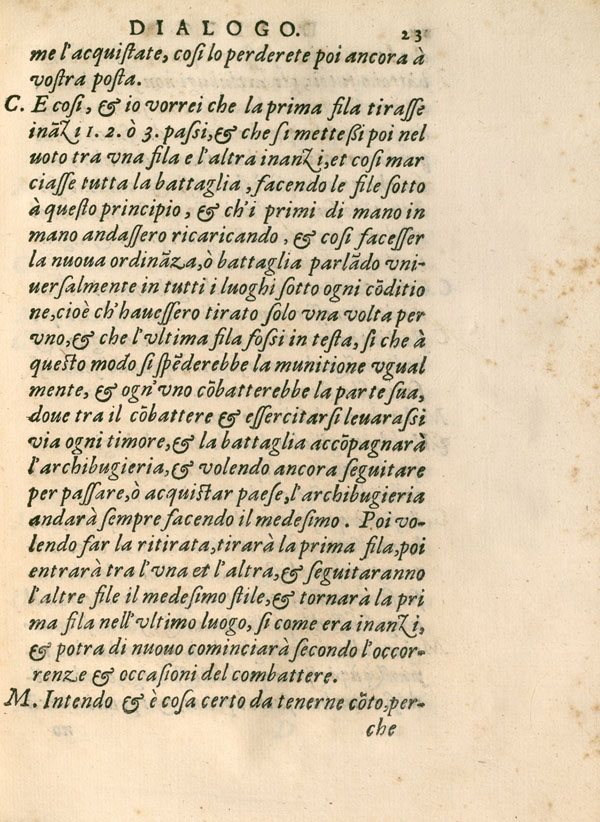 DIALOGO. 23
me l'acquiſtate, coſi lo perderete poi ancora à
voſtra poſta.
C. E coſi, & io vorrei che la prima fila tiraſſe
inãzi 1. 2. ò 3. paſsi, & che ſi metteßi poi nel
uoto tra vna fila e l'altra inanzi, et coſi mar
ciaſſe tutta la battaglia, facendo le file ſotto
à queſto principio, & ch'i primi di mano in
mano andaſſero ricaricando, & coſi faceſſer
la nuoua ordinãza, ò battaglia parlãdo vni-
uerſalmente in tutti i luoghi ſotto ogni cõditio
ne, cioè ch'haueſſero tirato ſolo vna volta per
vno, & che l'vltima fila foſsi in teſta, ſi che à
queſto modo ſi ſpẽderebbe la munitione vgual
mente, & ogn'vno cõbatterebbe la parte ſua,
doue tra il cõbattere & eſſercitarſi leuaraſsi
via ogni timore, & la battaglia accõpagnarà
l'archibugieria, & volendo ancora ſeguitare
per paſſare, ò acquiſtar paeſe, l'archibugieria
andarà ſempre facendo il medeſimo. Poi vo-
lendo far la ritirata, tirarà la prima fila, poi
entrarà tra l'vna et l'altra, & ſeguitaranno
l'altre file il medeſimo ſtile, & tornarà la pri
ma fila nell'vltimo luogo, ſi come era inanzi,
& potra di nuouo cominciarà ſecondo l'occor-
renze & occaſioni del combattere.
M. Intendo & è coſa certo da tenerne cõto, per-
che